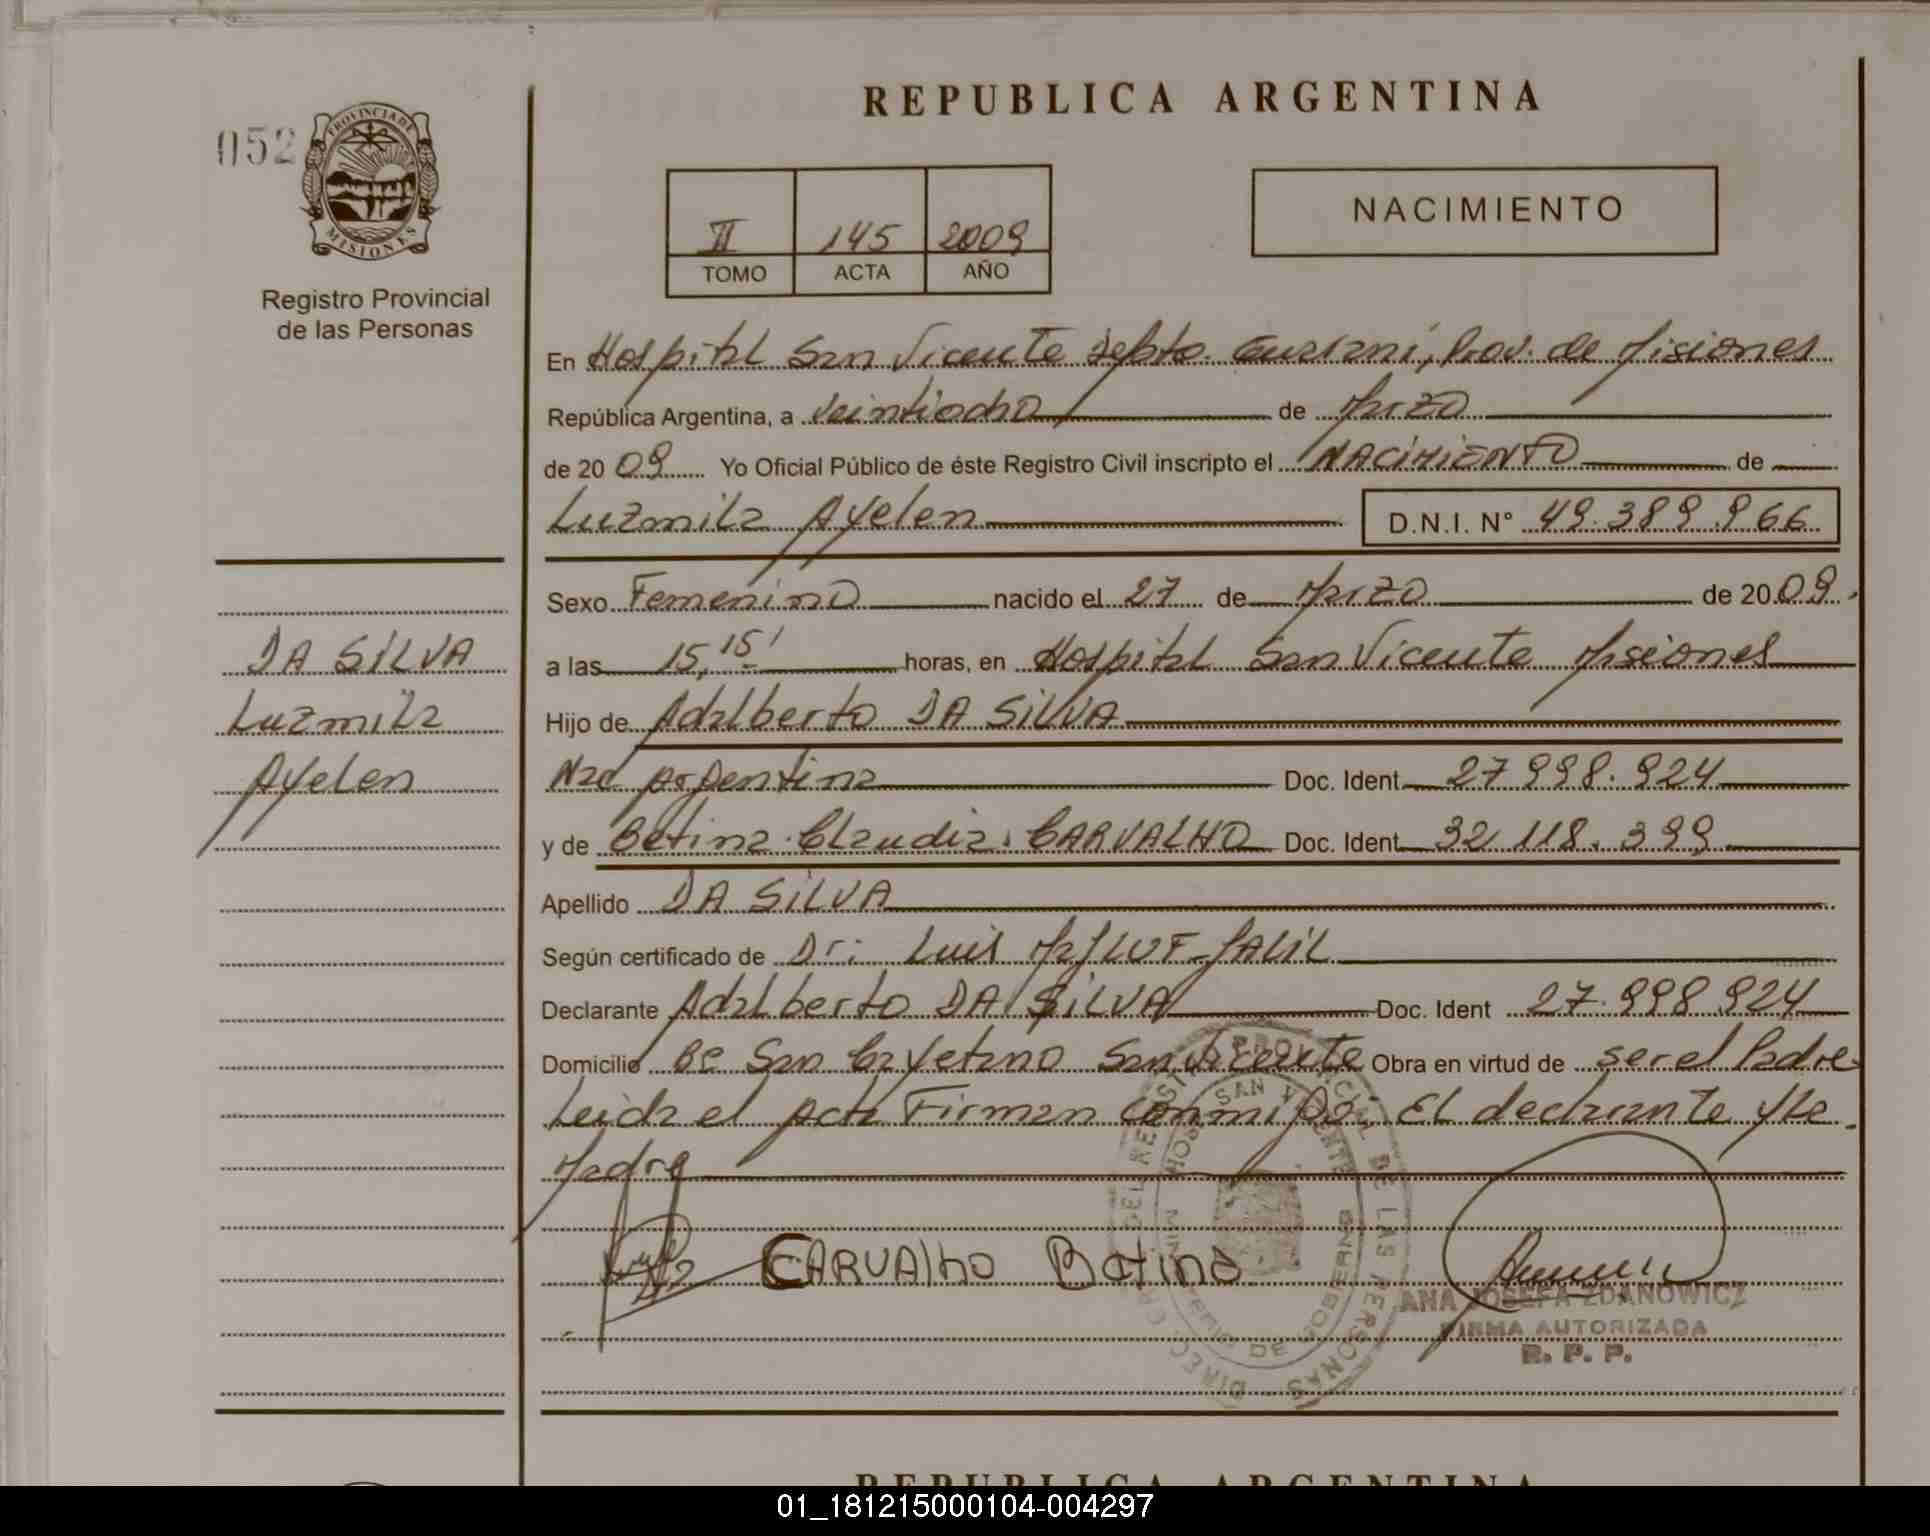 REPUBLICA ARGENTINA
052
PROVINCIA DE
MISIONES
Registro Provincial
de las Personas
II 145 2009
TOMO ACTA AÑO
NACIMIENTO
En Hospital San Vicente Depto. Guarani, Prov. de Misiones
República Argentina, a veintiocho de Marzo
de 20 09 Yo Oficial Público de éste Registro Civil inscripto el NACIMIENTO de
Luzmila Ayelen D.N.I. N° 49.389.966
Sexo Femenino nacido el 27 de Marzo de 20 09.
a las 15,15' horas, en Hospital San Vicente Misiones
Hijo de Adalberto DA SILVA
Nac Argentina Doc. Ident 27.998.924
y de Betina Claudia CARVALHO Doc. Ident 32.118.399
Apellido DA SILVA
Según certificado de Dr: Luis
Declarante Adalberto DA SILVA Doc. Ident 27.998.924
Domicilio Bº San Cayetano San Vicente Obra en virtud de ser el Padre
Leida el Acta Firman conmigo: El declarante y la
Madre
DA SILVA
Luzmila
Ayelen
CARVAlho Betina
DIRECC. GRAL. DEL REGISTRO PROVINCIAL DE LAS PERSONAS
HOSP. SAN VICENTE
MINISTERIO DE GOBIERNO
ANA JOSEFA ZDANOWICZ
FIRMA AUTORIZADA
R. P. P.
REPUBLICA ARGENTINA
01_181215000104-004297